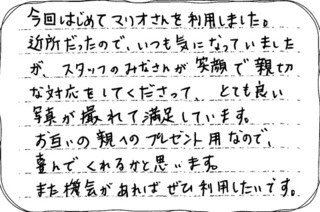 今回はじめてマリオさんを利用しました。
近所だったので、いつも気になっていました
が、スタッフのみなさんが笑顔で親切
な対応をしてくださって、とても良い
写真が撮れて満足しています。
お互いの親へのプレゼント用なので、
喜んでくれるかと思います。
また機会があればぜひ利用したいです。